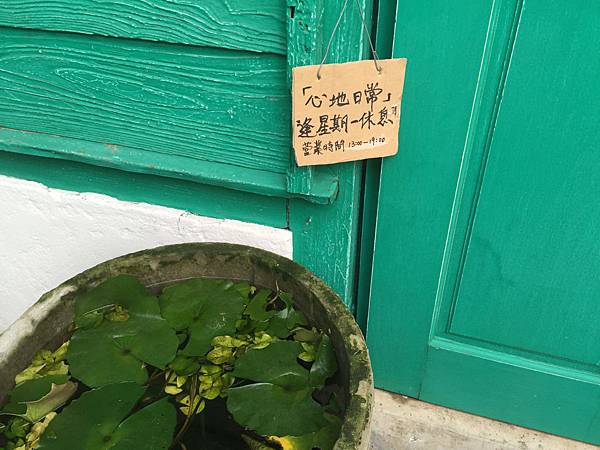 「心地日常」
逢星期一休息
營業時間 13:00－19:00